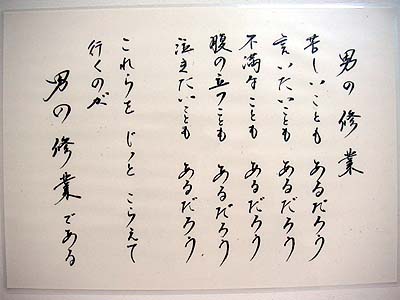 男の修業
苦しいことも あるだろう
言いたいことも あるだろう
不満なことも あるだろう
腹の立つことも あるだろう
泣きたいことも あるだろう
これらを じっと こらえて
行くのが
男の修業である